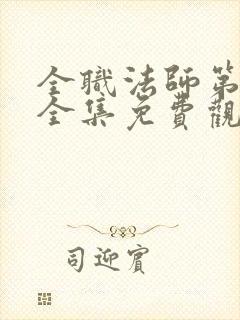 全職法師第
全集免費觀
司迎賓